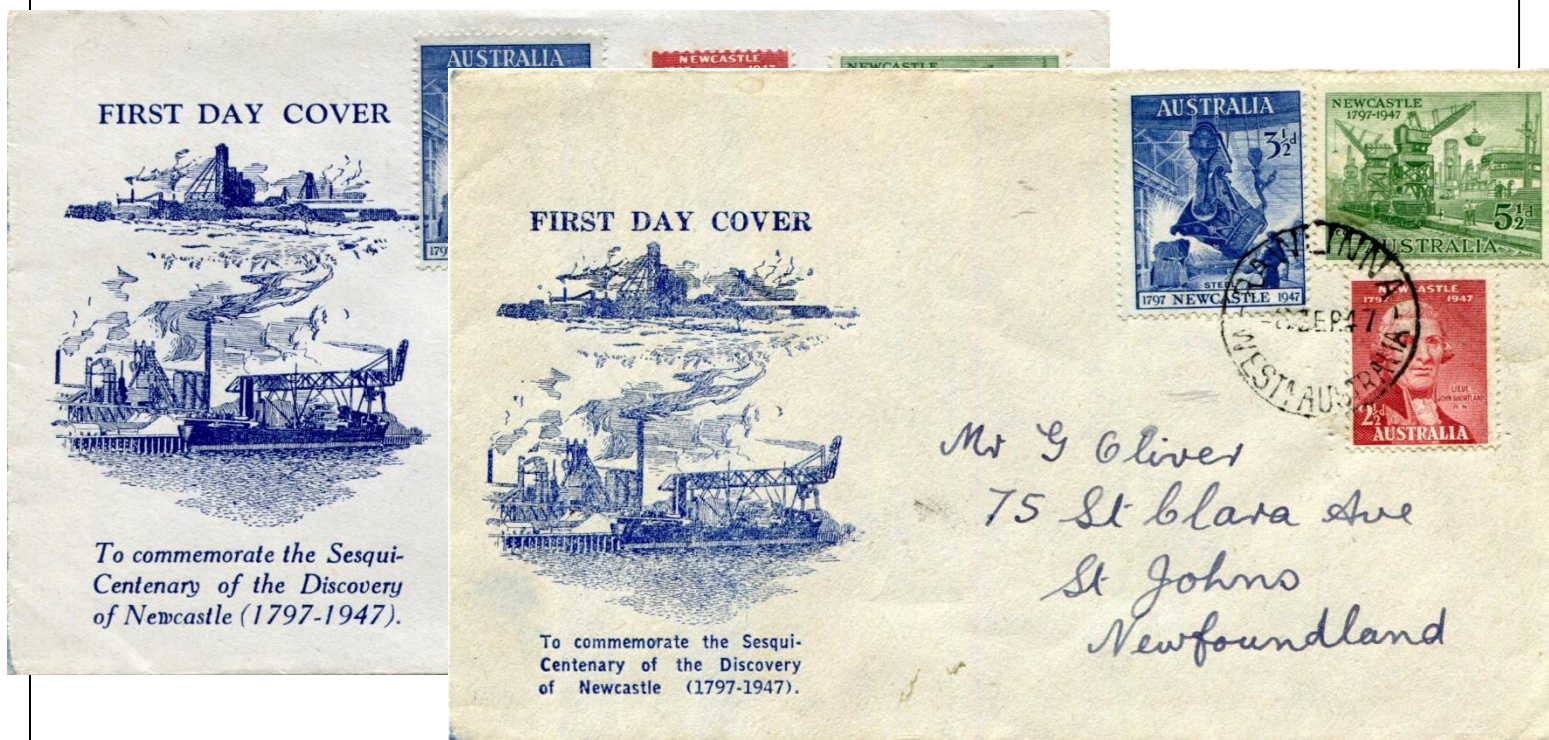 FIRST DAY COVER
To commemorate the Sesqui-
Centenary of the Discovery
of Newcastle (1797-1947).
AUSTRALIA
179
NEWCASTLE
1947
NEWCASTLE
FIRST DAY COVER
To commemorate the Sesqui-
Centenary of the Discovery
of Newcastle (1797-1947).
AUSTRALIA
3½d
STEEL
1797 NEWCASTLE 1947
NEWCASTLE
1797-1947
5½d
AUSTRALIA
NEWCASTLE
1797 1947
LIEUT.
JOHN SHORTLAND
R.N.
2½d
AUSTRALIA
RAWLINNA
SEP 47
WEST AUSTRALIA
Mr G Oliver
75 St Clara Ave
St Johns
Newfoundland